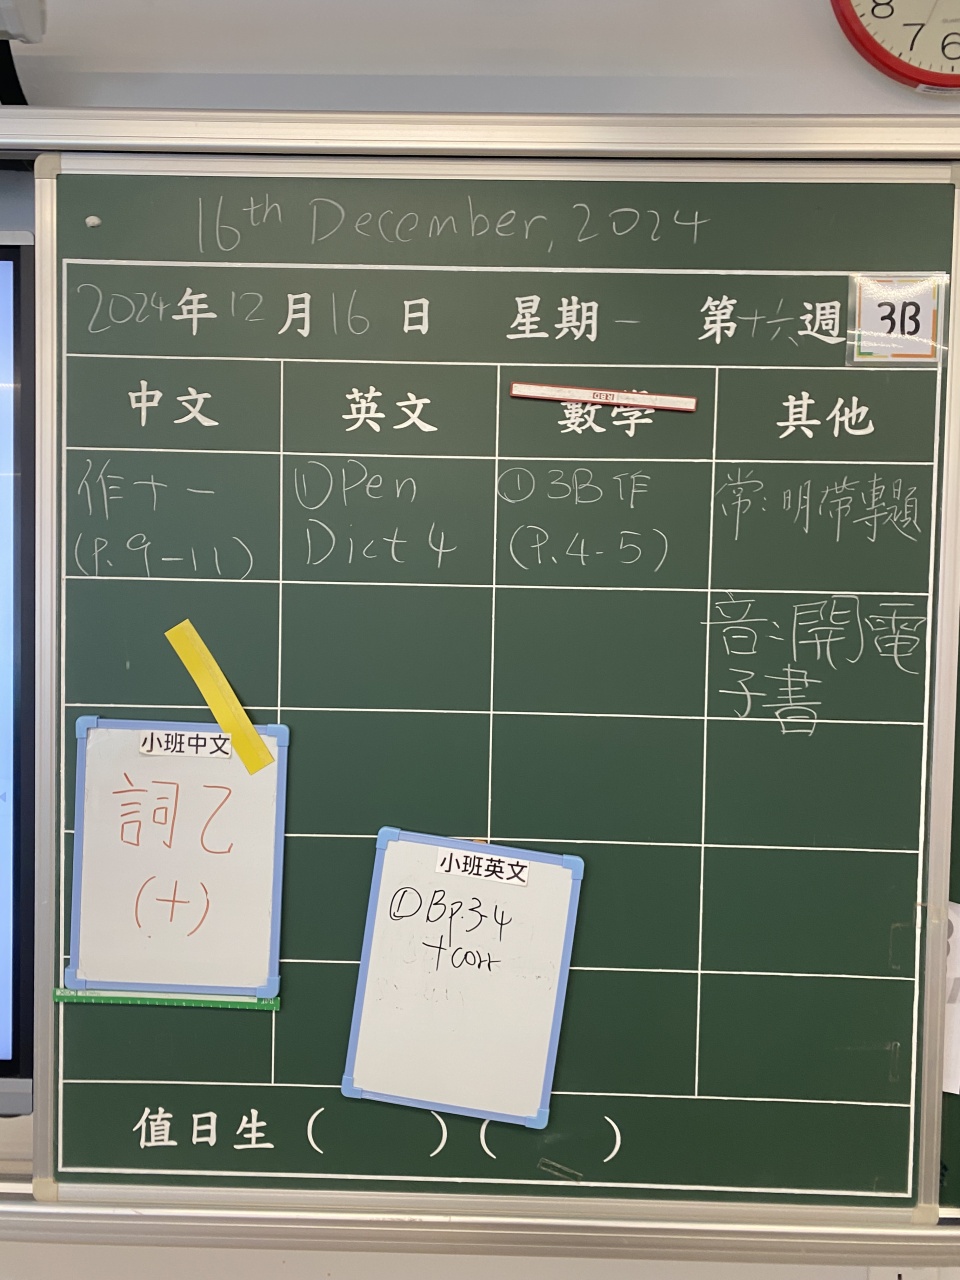 8
7
6
16th December, 2024
2024年12月16日 星期一 第十六週 3B
中文 英文 數學 其他
作十一
(P.9-11)
①Pen
Dict 4
①3B作
(P.4-5)
常:明帶專題
音:開電
子書
小班中文
詞乙
(十)
小班英文
①Bp.3-4
+corr
值日生( )( )